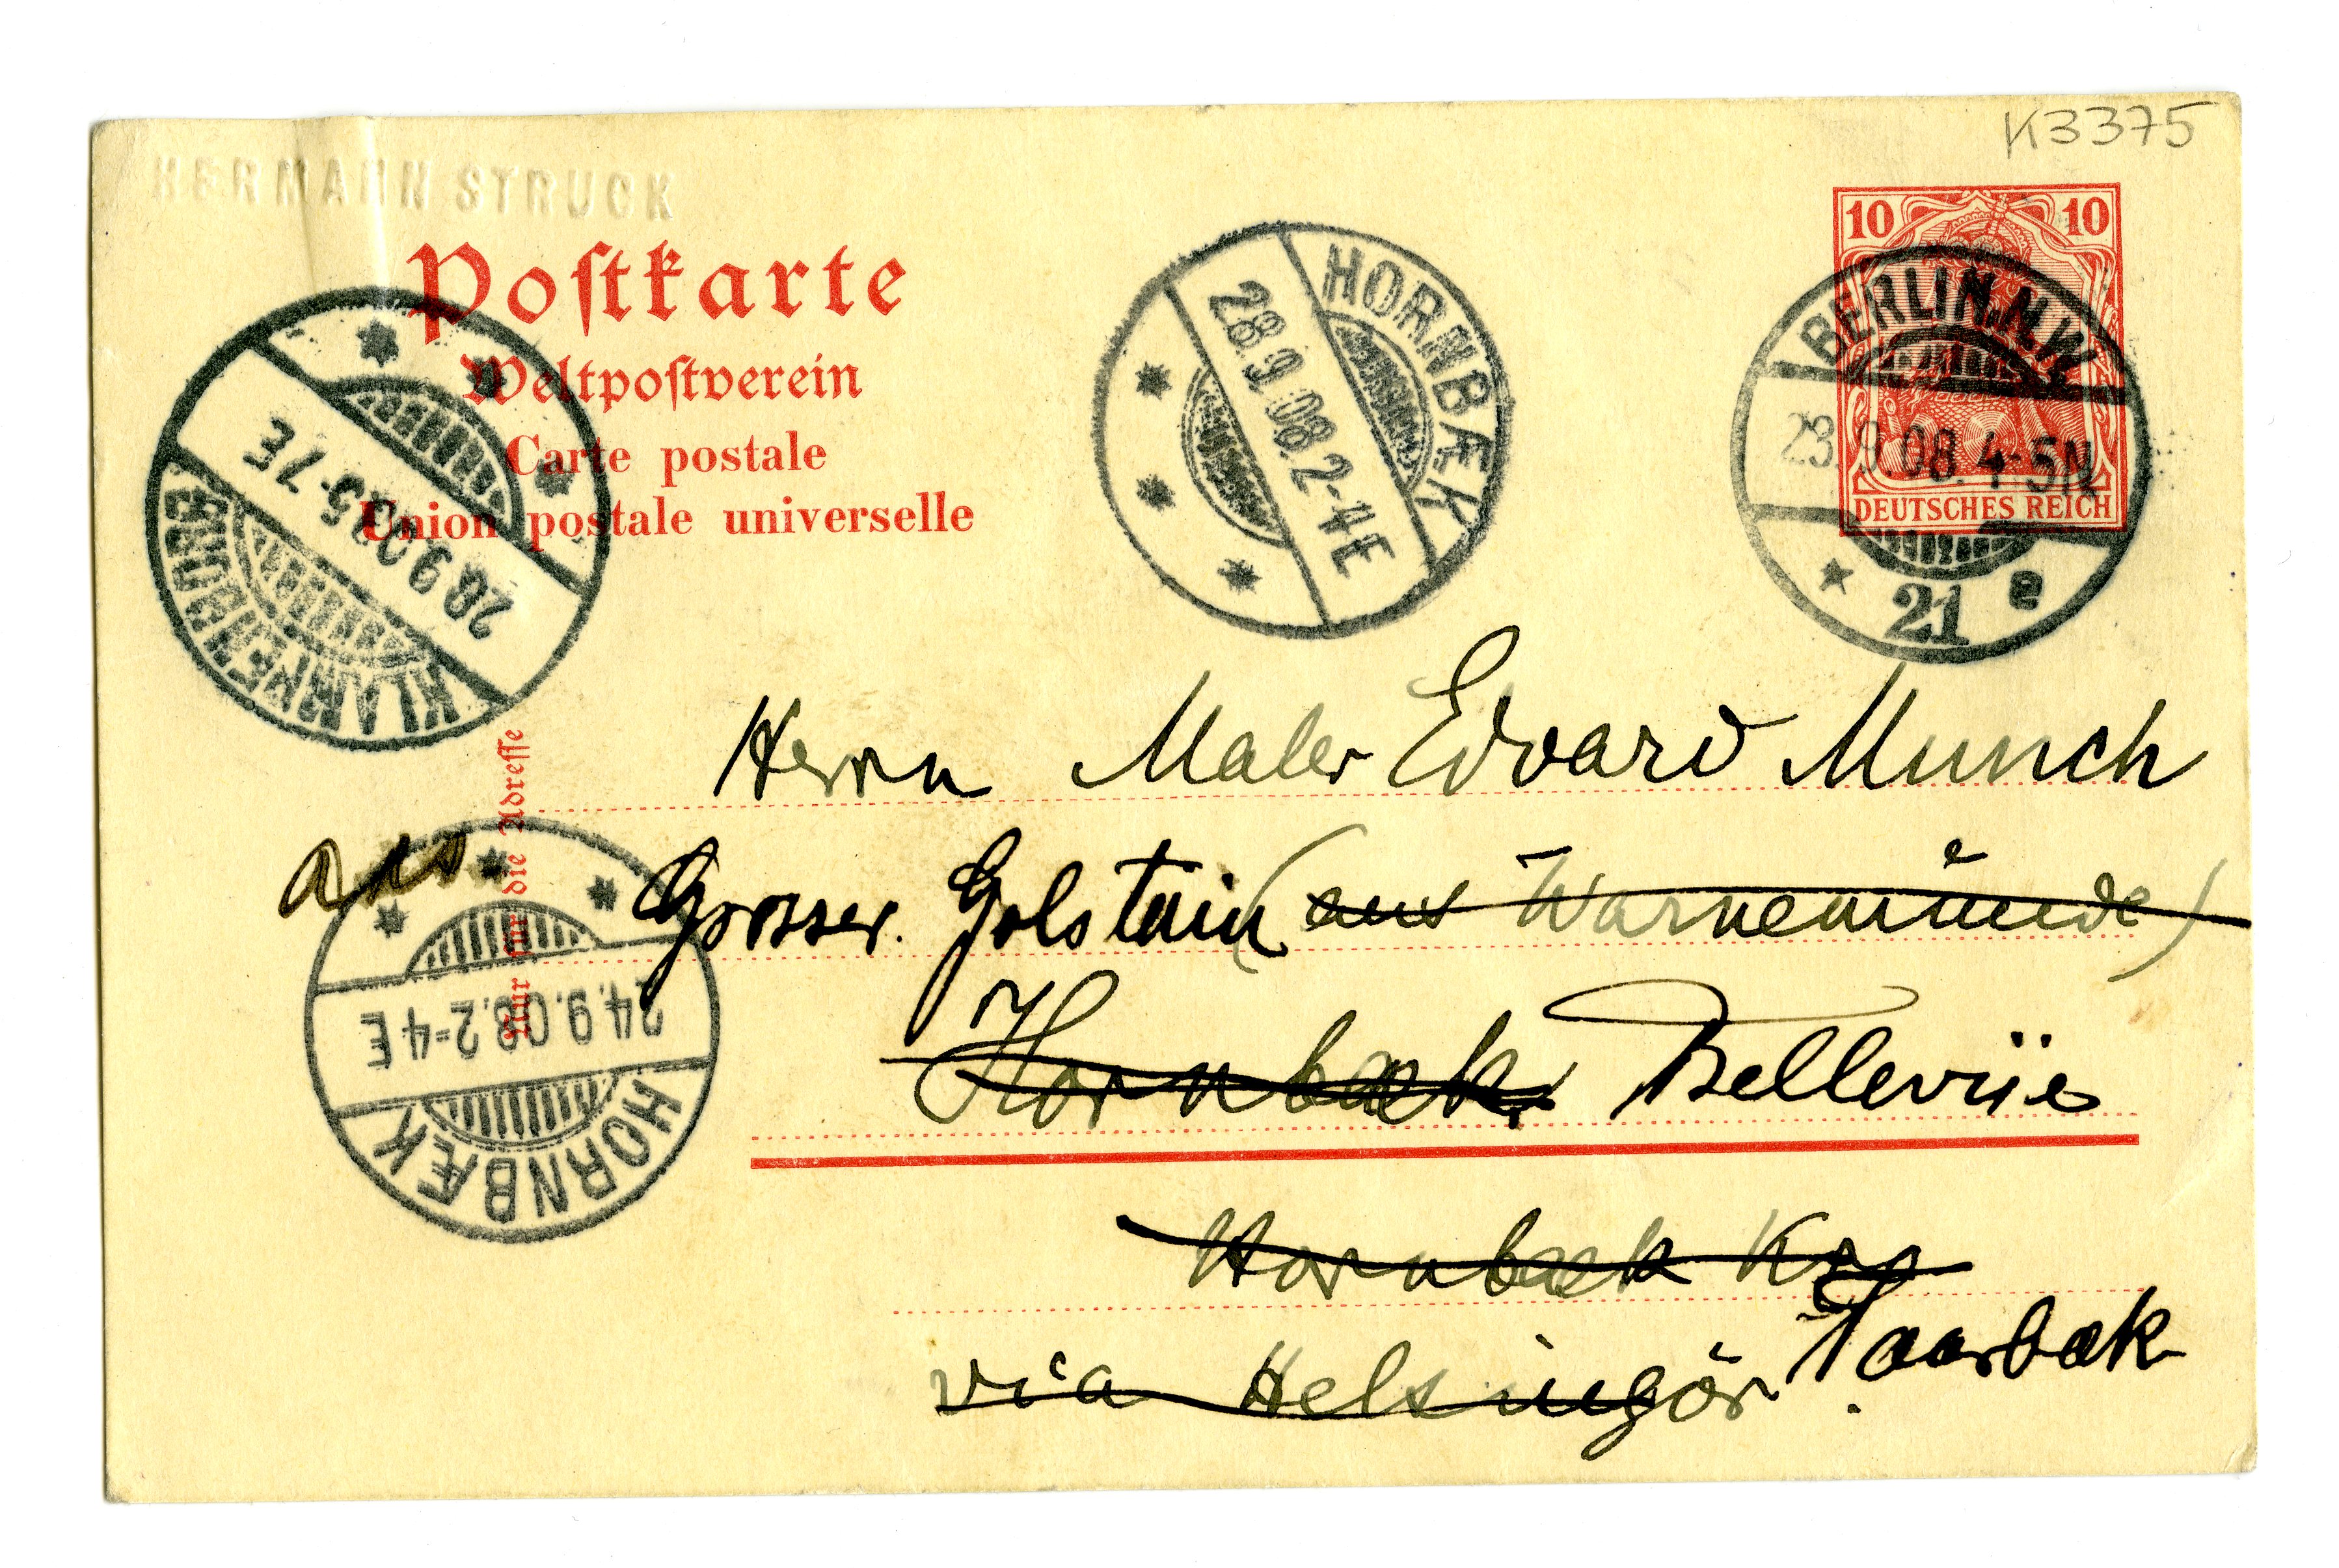 K3375
HERMANN STRUCK
Postkarte
Weltpostverein
Carte postale
Union postale universelle
10 10
DEUTSCHES REICH
BERLIN.N.W.
23.9.08.4-5N
* 21 e
HORNBÆK
28.9.08.2-4E
KLAMPENBORG
5-7E
HORNBÆK
24.9.08.2-4E
Nur für die Adresse
Herrn Maler Edvard Munch
Grosser. (aus Warnemünde)
Hornbæk, Bellevüe
Hornbæk Kro
Taarbæk
via Helsingör.